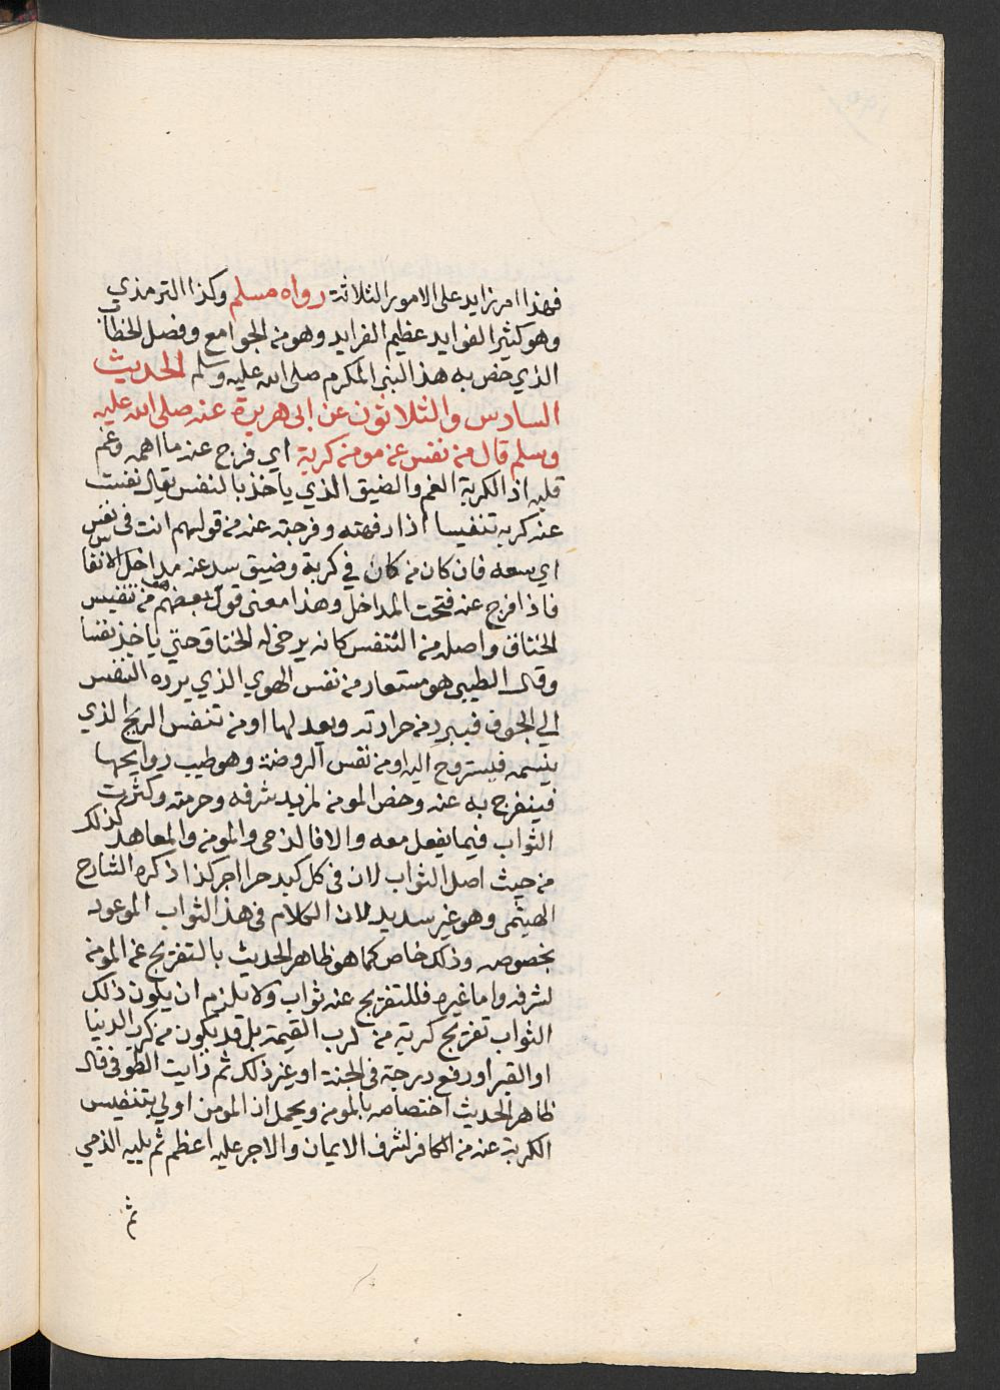 فهذا امر زايد على الامور الثلاثة رواه مسلم وكذا الترمذي
وهو كثير الفوايد عظيم الفرايد وهو من الجوامع وفصل الخطاب
الذي خص به هذا النبي المكرم صلى الله عليه وسلم الحديث
السادس والثلاثون عن ابى هريرة عنه صلى الله عليه
وسلم قال من نفس عن مومن كربة اي فرج عنه ما اهمه وغم
قلبه اذ الكربة الغم والضيق الذي ياخذ بالنفس يقال نفست
عنه كربه تنفيسا اذا رفهته وفرجته عنه من قولهم انت فى نفس
اي سعه فان كان من كان في كربة وضيق سد عنه مداخل الانفاس
فاذا افرج عنه فتحت المداخل وهذا معنى قول بعضهم من تنفيس
الخناق واصله من التنفس كانه يرخى له الخناق حتي ياخذ نفسا
وقال الطيبى هو مستعار من نفس الهوي الذي يرده النفس
الي الجوف فيبرد من حرارته ويعدلها او من تنفس الريح الذي
ينسمه فيستروح اليه او من نفس الروضة وهو طيب روايحها
فينفرج به عنه وخص المومن لمزيد شرفه وحرمته وكثرت
الثواب فيما يفعل معه والا فالذمى والمومن والمعاهد كذلك
من حيث اصل الثواب لان فى كل كبد حرا اجر كذا ذكره الشارح
الهيثمى وهو غير سديد لان الكلام فى هذا الثواب الموعود
بخصوصه وذلك خاص كما هو ظاهر الحديث بالتفريج عن المومن
لشرفه واما غيره فللتفريج عنه ثواب ولا يلزم ان يكون ذلك
الثواب تفريج كربة من كرب القيمة بل قد يكون من كرب الدنيا
او القبر او رفع درجة فى الجنة او غير ذلك ثم رايت الطوفى قال
ظاهر الحديث اختصاصه بالمومن ويحمل ان المومن اولي بتنفيس
الكربة عنه من الكافر لشرف الايمان والاجر عليه اعظم ثم يليه الذمي
ثم